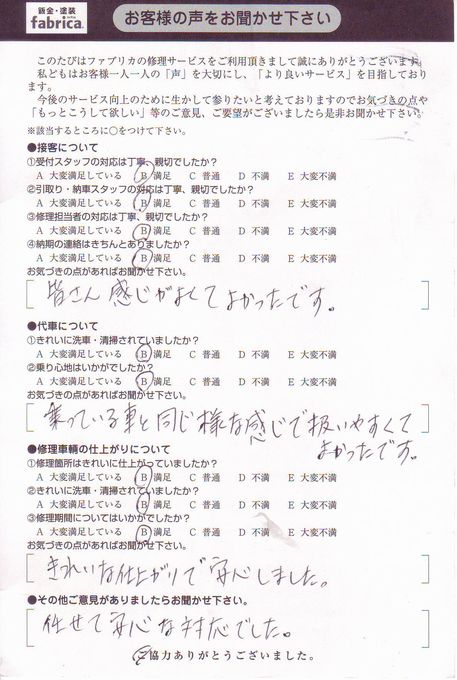 鈑金・塗装
fabrica.
お客様の声をお聞かせ下さい
このたびはファブリカの修理サービスをご利用頂きまして誠にありがとうございます。
私どもはお客様一人一人の「声」を大切にし、「より良いサービス」を目指しており
ます。
今後のサービス向上のために生かして参りたいと考えておりますのでお気づきの点や
「もっとこうして欲しい」等のご意見、ご要望がございましたら是非お聞かせ下さい。
※該当するところに○をつけて下さい。
●接客について
①受付スタッフの対応は丁寧、親切でしたか？
A 大変満足している B 満足 C 普通 D 不満 E 大変不満
②引取り・納車スタッフの対応は丁寧、親切でしたか？
A 大変満足している B 満足 C 普通 D 不満 E 大変不満
③修理担当者の対応は丁寧、親切でしたか？
A 大変満足している B 満足 C 普通 D 不満 E 大変不満
④納期の連絡はきちんとありましたか？
A 大変満足している B 満足 C 普通 D 不満 E 大変不満
お気づきの点があればお聞かせ下さい。
皆さん感じがよくてよかったです。
●代車について
①きれいに洗車・清掃されていましたか？
A 大変満足している B 満足 C 普通 D 不満 E 大変不満
②乗り心地はいかがでしたか？
A 大変満足している B 満足 C 普通 D 不満 E 大変不満
お気づきの点があればお聞かせ下さい。
乗っている車と同じ様な感じで扱いやすくて
よかったです。
●修理車輌の仕上がりについて
①修理箇所はきれいに仕上がっていましたか？
A 大変満足している B 満足 C 普通 D 不満 E 大変不満
②きれいに洗車・清掃されていましたか？
A 大変満足している B 満足 C 普通 D 不満 E 大変不満
③修理期間についてはいかがでしたか？
A 大変満足している B 満足 C 普通 D 不満 E 大変不満
お気づきの点があればお聞かせ下さい。
きれいな仕上がりで安心しました。
●その他ご意見がありましたらお聞かせ下さい。
任せて安心な対応でした。
ご協力ありがとうございました。